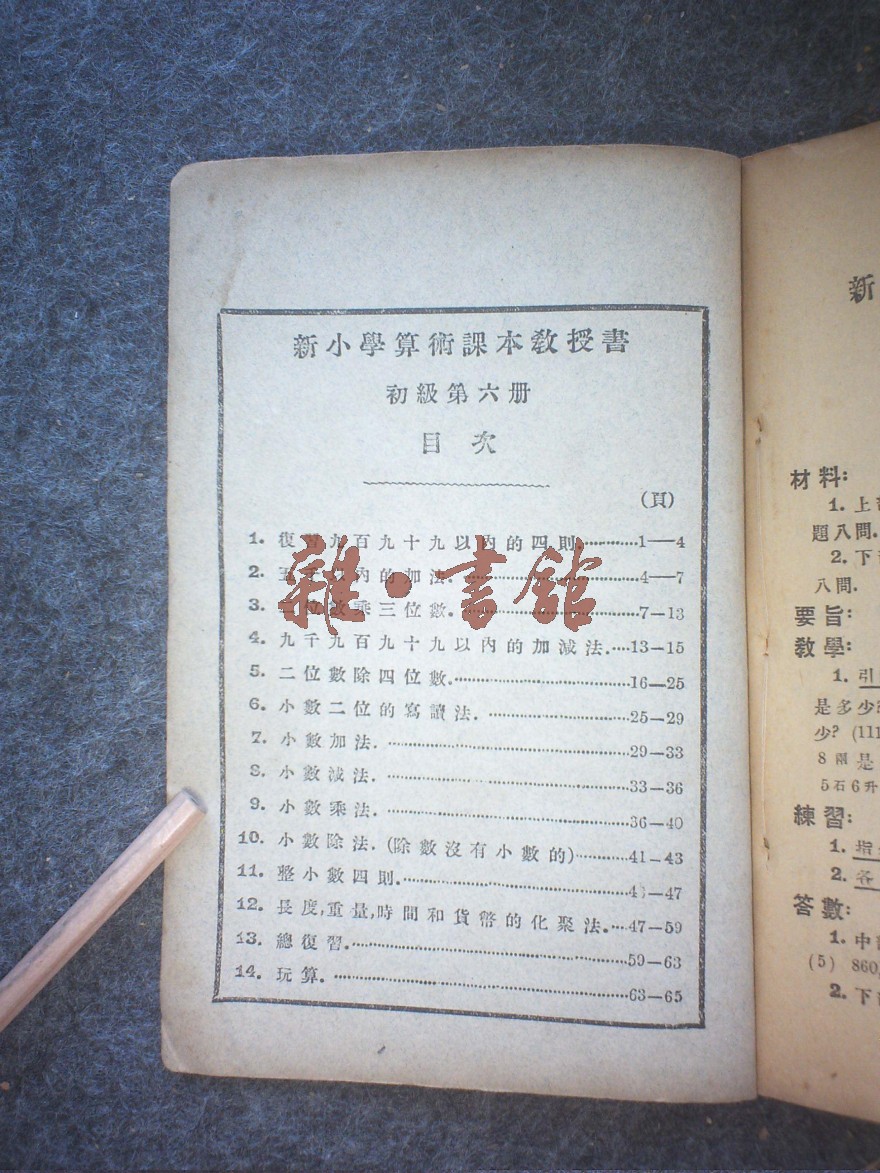 新小學算術課本教授書
初級第六册
目次
(頁)
1. 復習九百九十九以內的四則.…………1—4
2. 五千以內的加法.……………………4—7
3. 二位數乘三位數.……………………7—13
4. 九千九百九十九以內的加減法.…13—15
5. 二位數除四位數.……………………16—25
6. 小數二位的寫讀法.…………………25—29
7. 小數加法.……………………………29—33
8. 小數減法.……………………………33—36
9. 小數乘法.……………………………36—40
10. 小數除法.(除數沒有小數的)…………41—43
11. 整小數四則.…………………………4—47
12. 長度,重量,時間和貨幣的化聚法.…47—59
13. 總復習.………………………………59—63
14. 玩算.…………………………………63—65
雜·書館
新
材料:
1. 上
題八問.
2. 下
八問.
要旨:
教學:
1. 引
是多少?
少? (111
8 兩是
5石6升
練習:
1. 指
2. 各
答數:
1. 中
(5) 860
2. 下